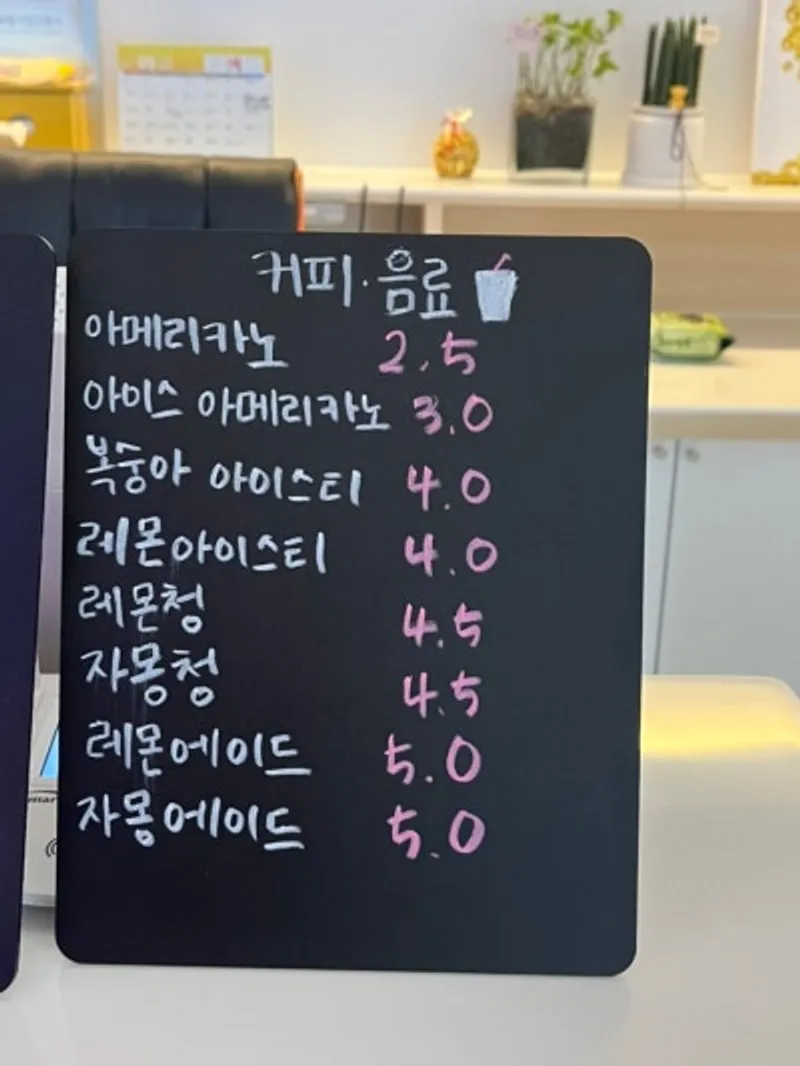 커피·음료
아메리카노 2.5
아이스 아메리카노 3.0
복숭아 아이스티 4.0
레몬아이스티 4.0
레몬청 4.5
자몽청 4.5
레몬에이드 5.0
자몽에이드 5.0